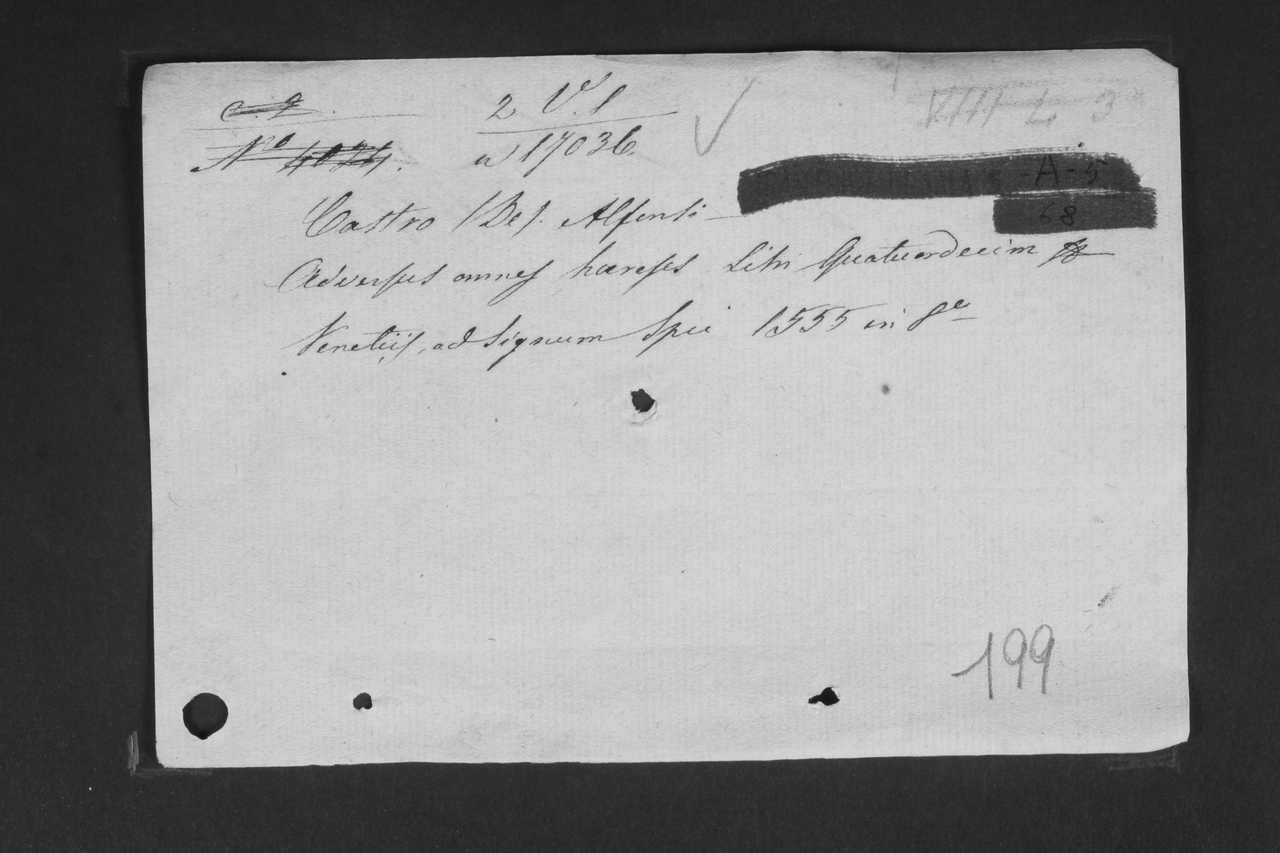 c. 9. 2 Vl. 1
No 4024. a 17036.
VIII L 3
A - 5
68
Castro (De). Alfonsi
Adversus omnes hæreses Libri Quatuordecim
Venetiis, ad Signum Spei 1555 in 8e
199